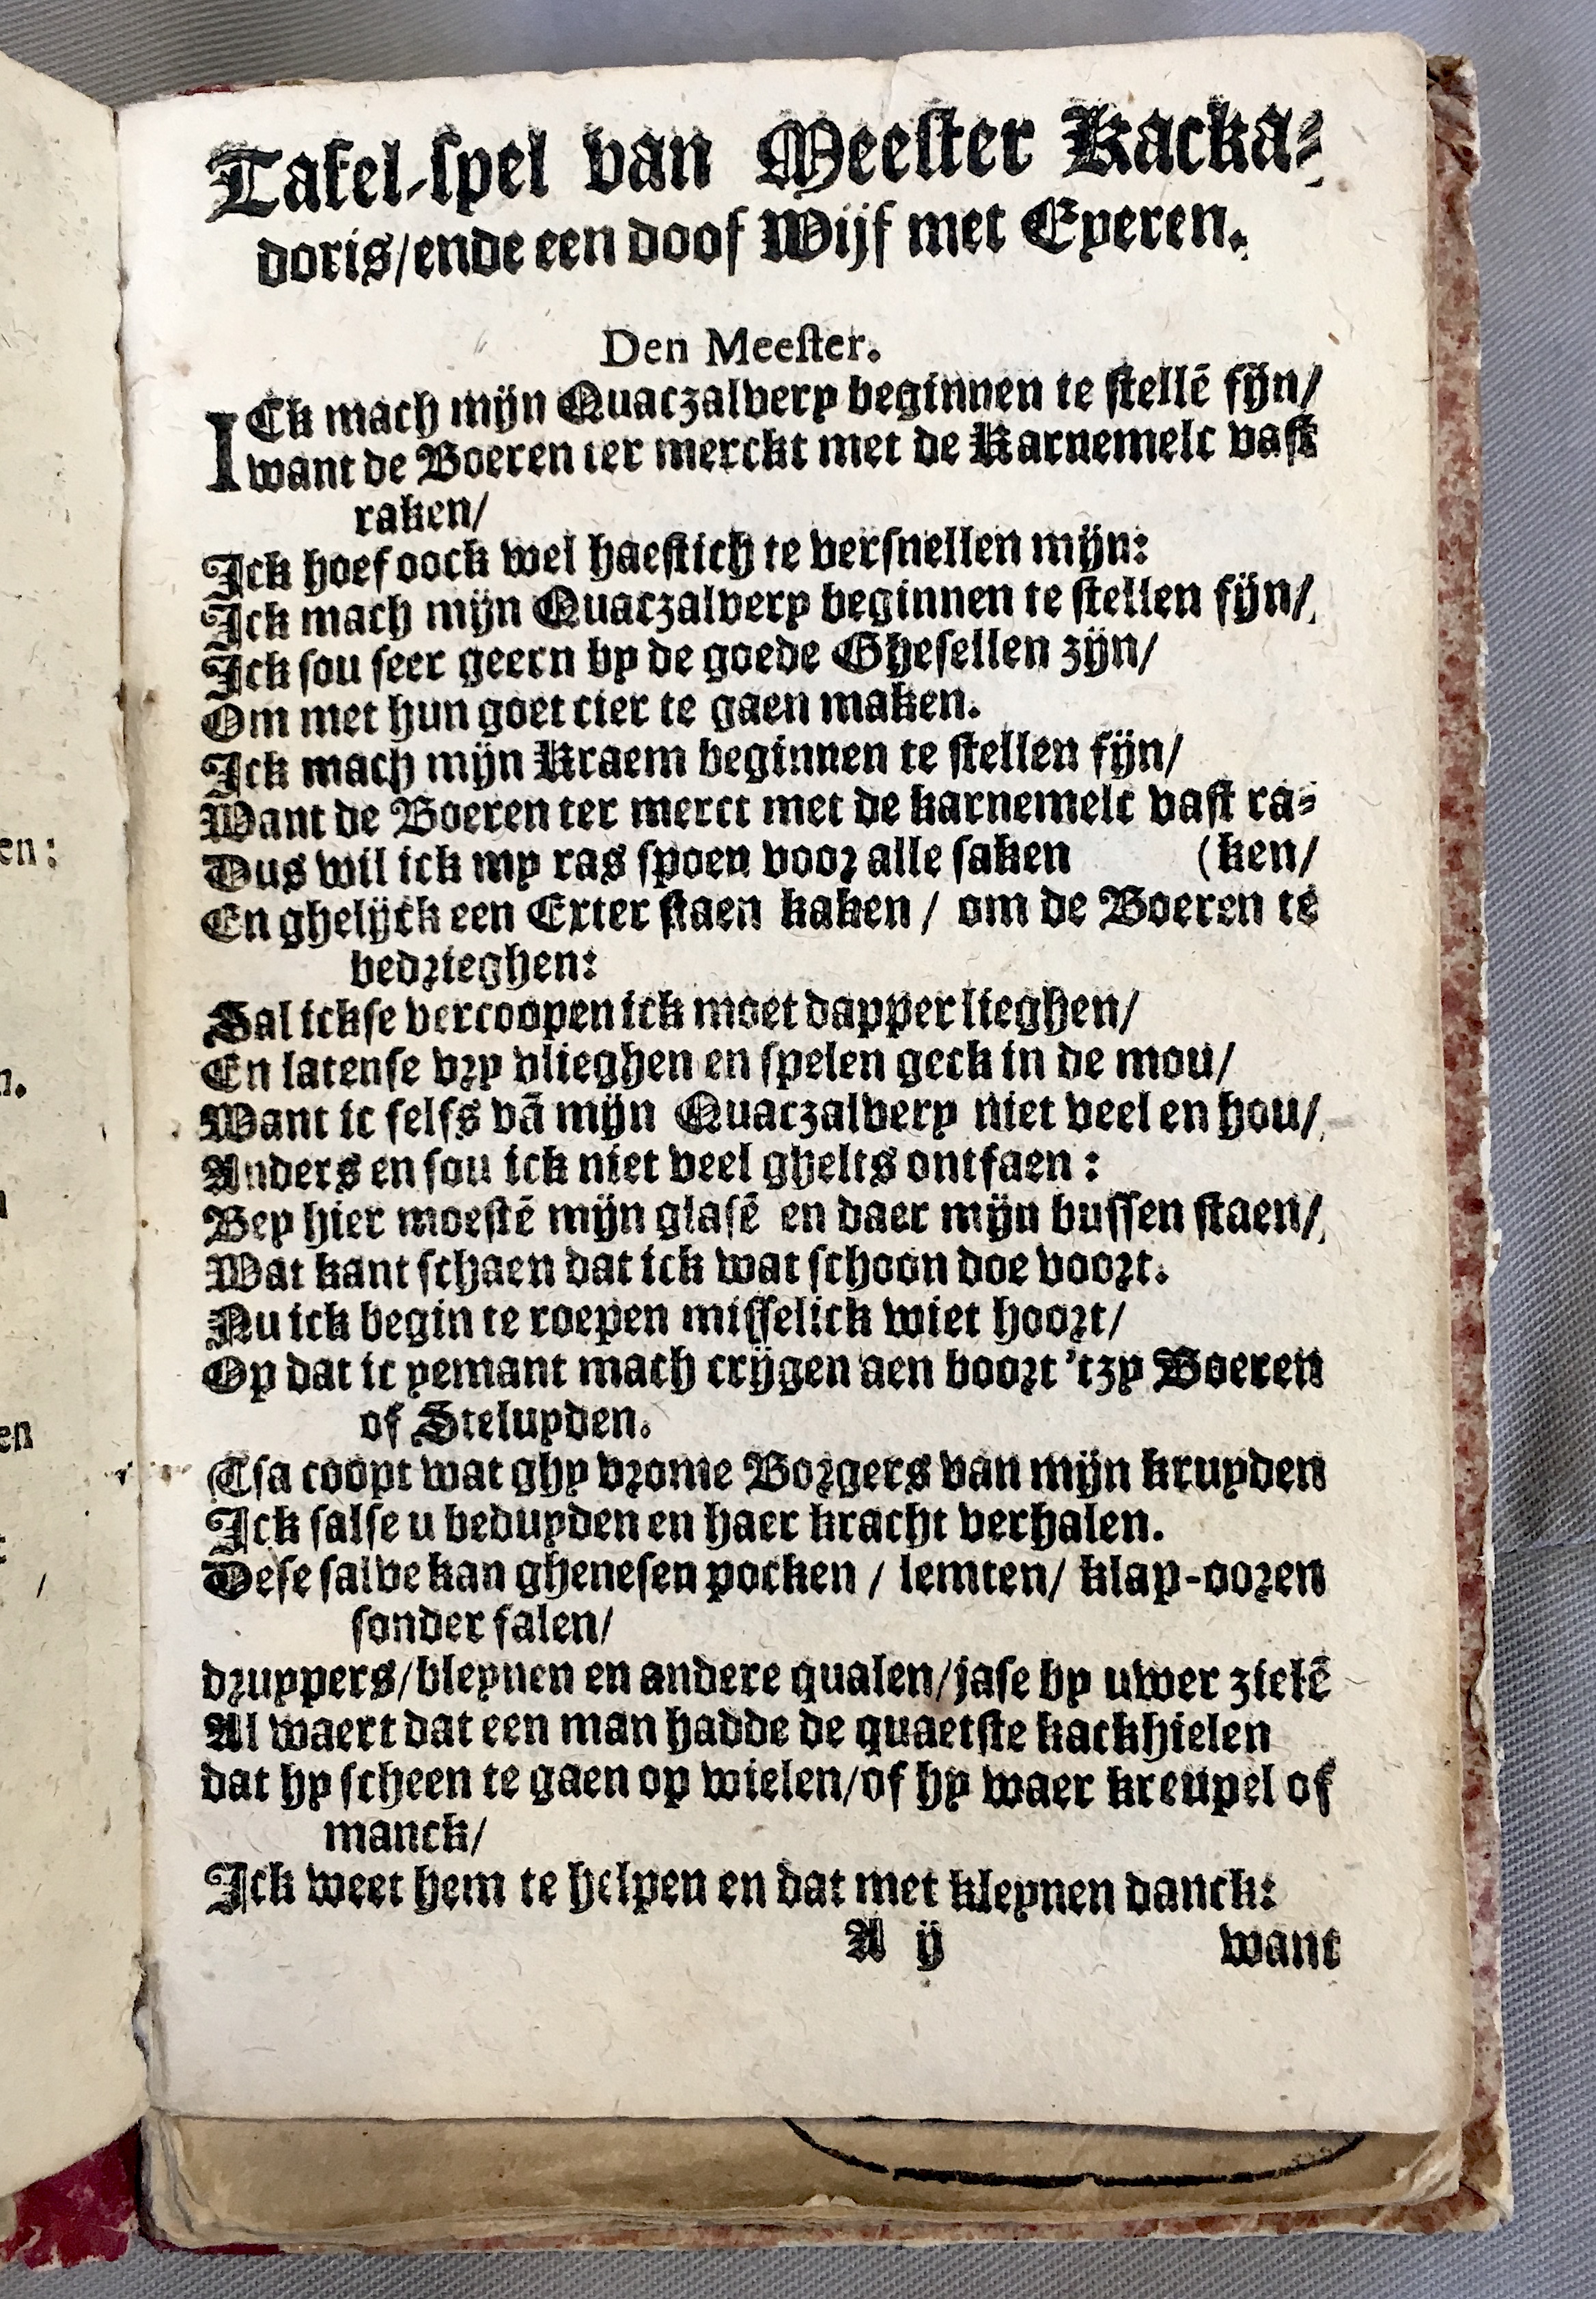 Tafel-spel van Meester Kacka-
doris/ende een doof Wijf met Eyeren.
Den Meester.
ICk mach mijn Quaczalvery beginnen te stellē fijn/
want de Boeren ter merckt met de Karnemelc vast
raken/
Ick hoef oock wel haestich te versnellen mijn:
Ick mach mijn Quaczalvery beginnen te stellen fijn/
Ick sou seer geern by de goede Ghesellen zijn/
Om met hun goet cier te gaen maken.
Ick mach mijn Kraem beginnen te stellen fijn/
Want de Boeren ter merct met de karnemelc vast ra-
Dus wil ick my ras spoen voor alle saken (ken/
En ghelijck een Exter staen kaken / om de Boeren te
bedrieghen:
Sal ickse vercoopen ick moet dapper lieghen/
En latense vry vlieghen en spelen geck in de mou/
Want ic selfs vā mijn Quaczalvery niet veel en hou/
Anders en sou ick niet veel ghelts ontfaen:
Bey hier moestē mijn glasē en daer mijn bussen staen/
Wat kant schaen dat ick wat schoon doe voort.
Nu ick begin te roepen misselick wiet hoort/
Op dat ic yemant mach crijgen aen boort 'tzy Boeren
of Steluyden.
Tsa coopt wat ghy vrome Borgers van mijn kruyden
Ick salse u beduyden en haer kracht verhalen.
Dese salve kan ghenesen pocken / lemten/ klap-ooren
sonder falen/
druypers/bleynen en andere qualen/jase by uwer zielē
Al waert dat een man hadde de quaetste kackhielen
dat hy scheen te gaen op wielen/of hy waer kreupel of
manck/
Ick weet hem te helpen en dat met kleynen danck:
A ij want
en:
n.
en
/